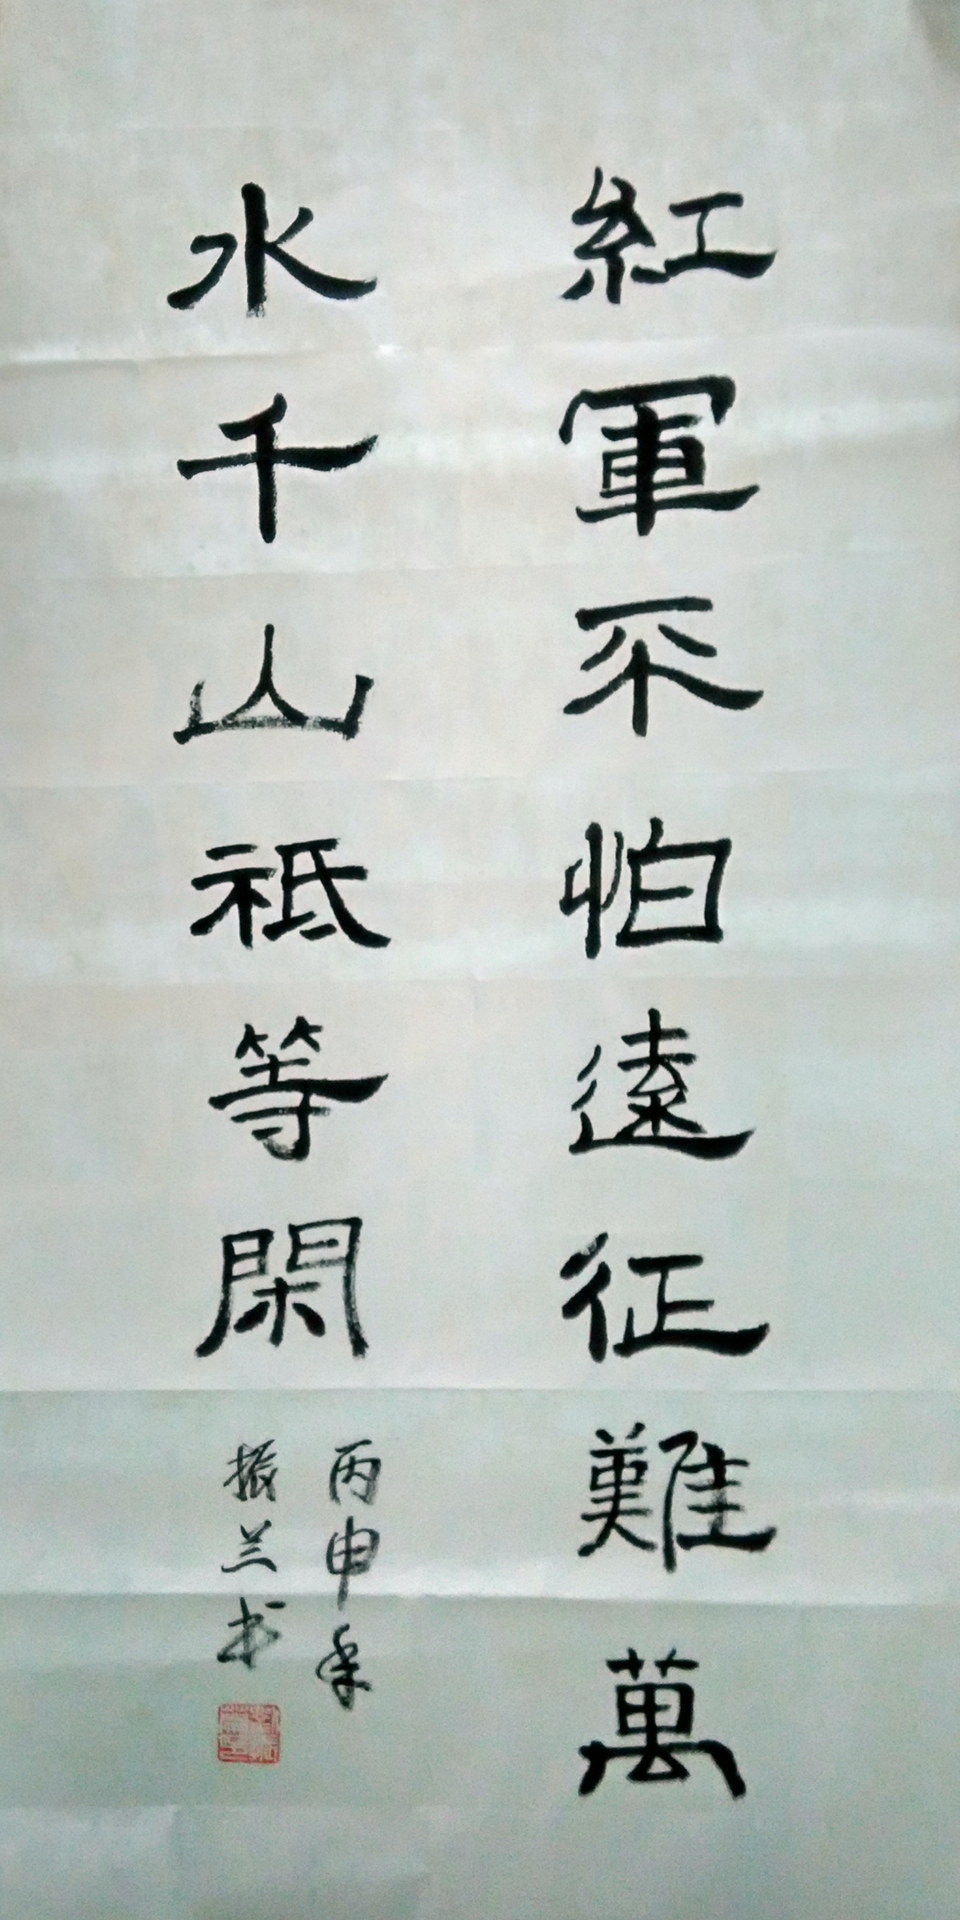 紅軍不怕遠征難萬
水千山祗等閑
丙申年
振兰书